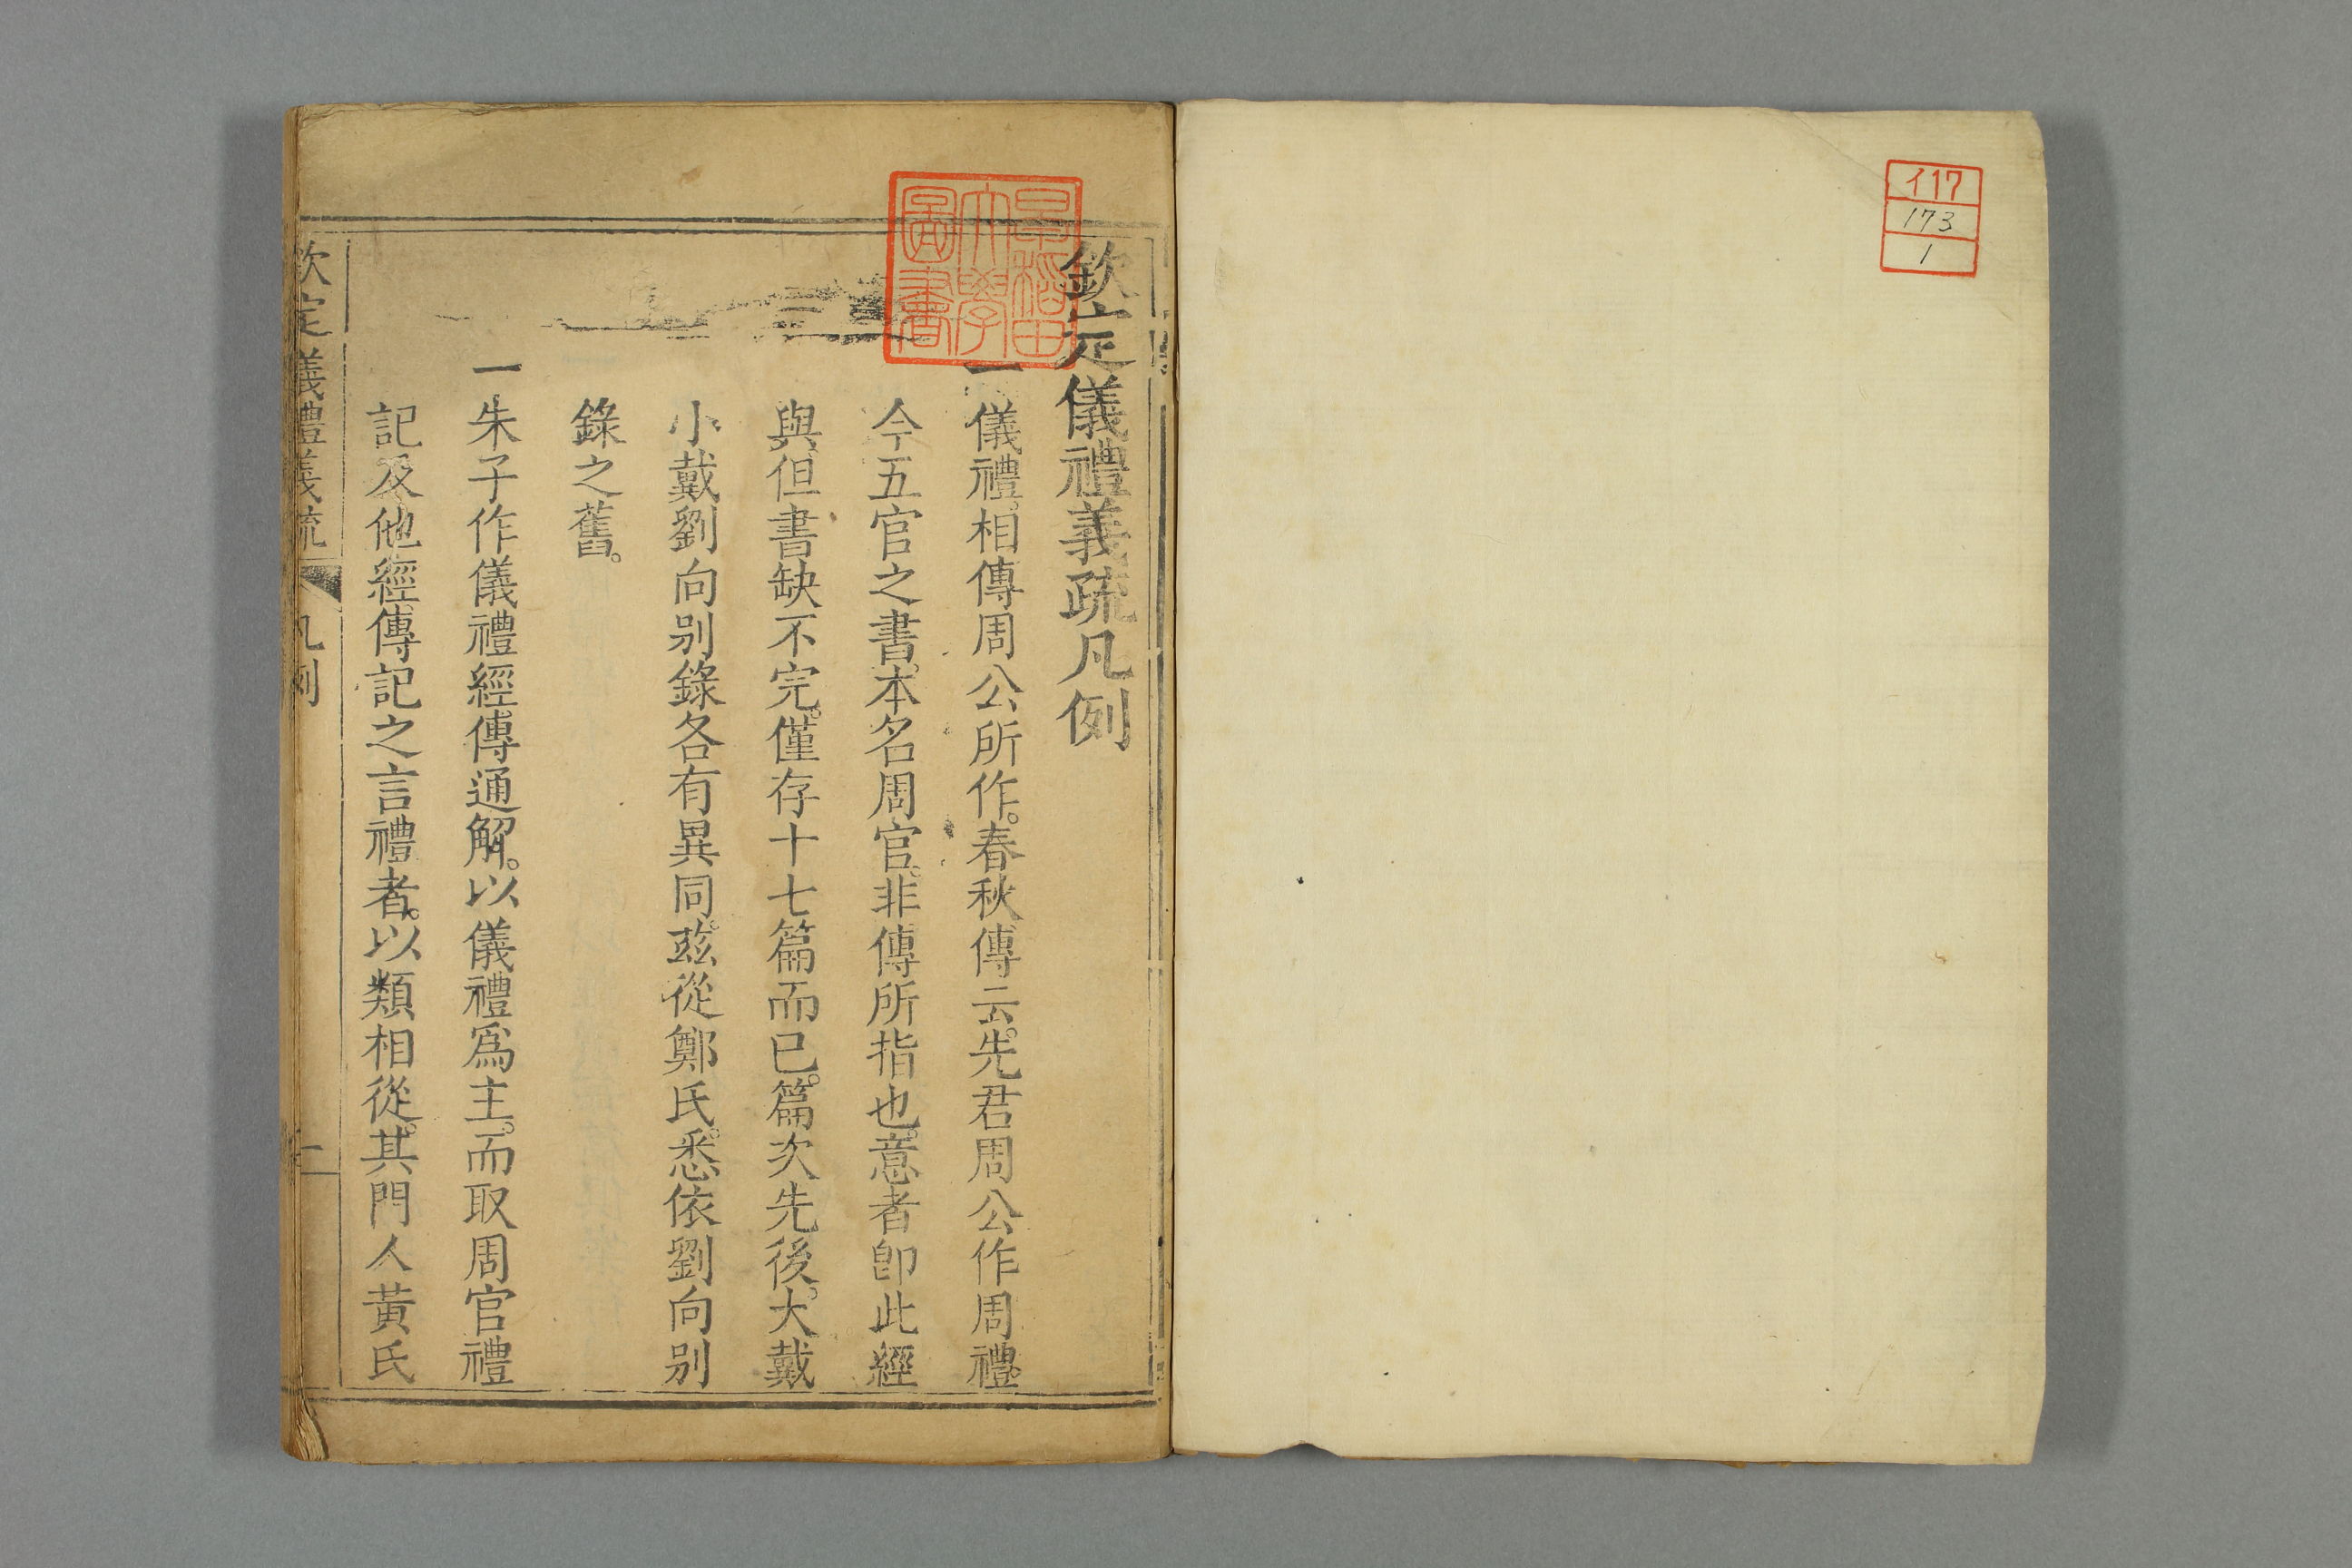 イ17
173
1
早稲田
大學
圖書
欽定儀禮義疏凡例
一儀禮。相傳周公所作。春秋傳云。先君周公作周禮。
今五官之書。本名周官。非傳所指也。意者卽此經
與。但書缺不完。僅存十七篇而已。篇次先後。大戴
小戴劉向別錄各有異同。玆從鄭氏。悉依劉向別
錄之舊。
一朱子作儀禮經傳通解。以儀禮爲主。而取周官禮
記及他經傳記之言禮者。以類相從。其門人黃氏
欽定儀禮義疏 凡例